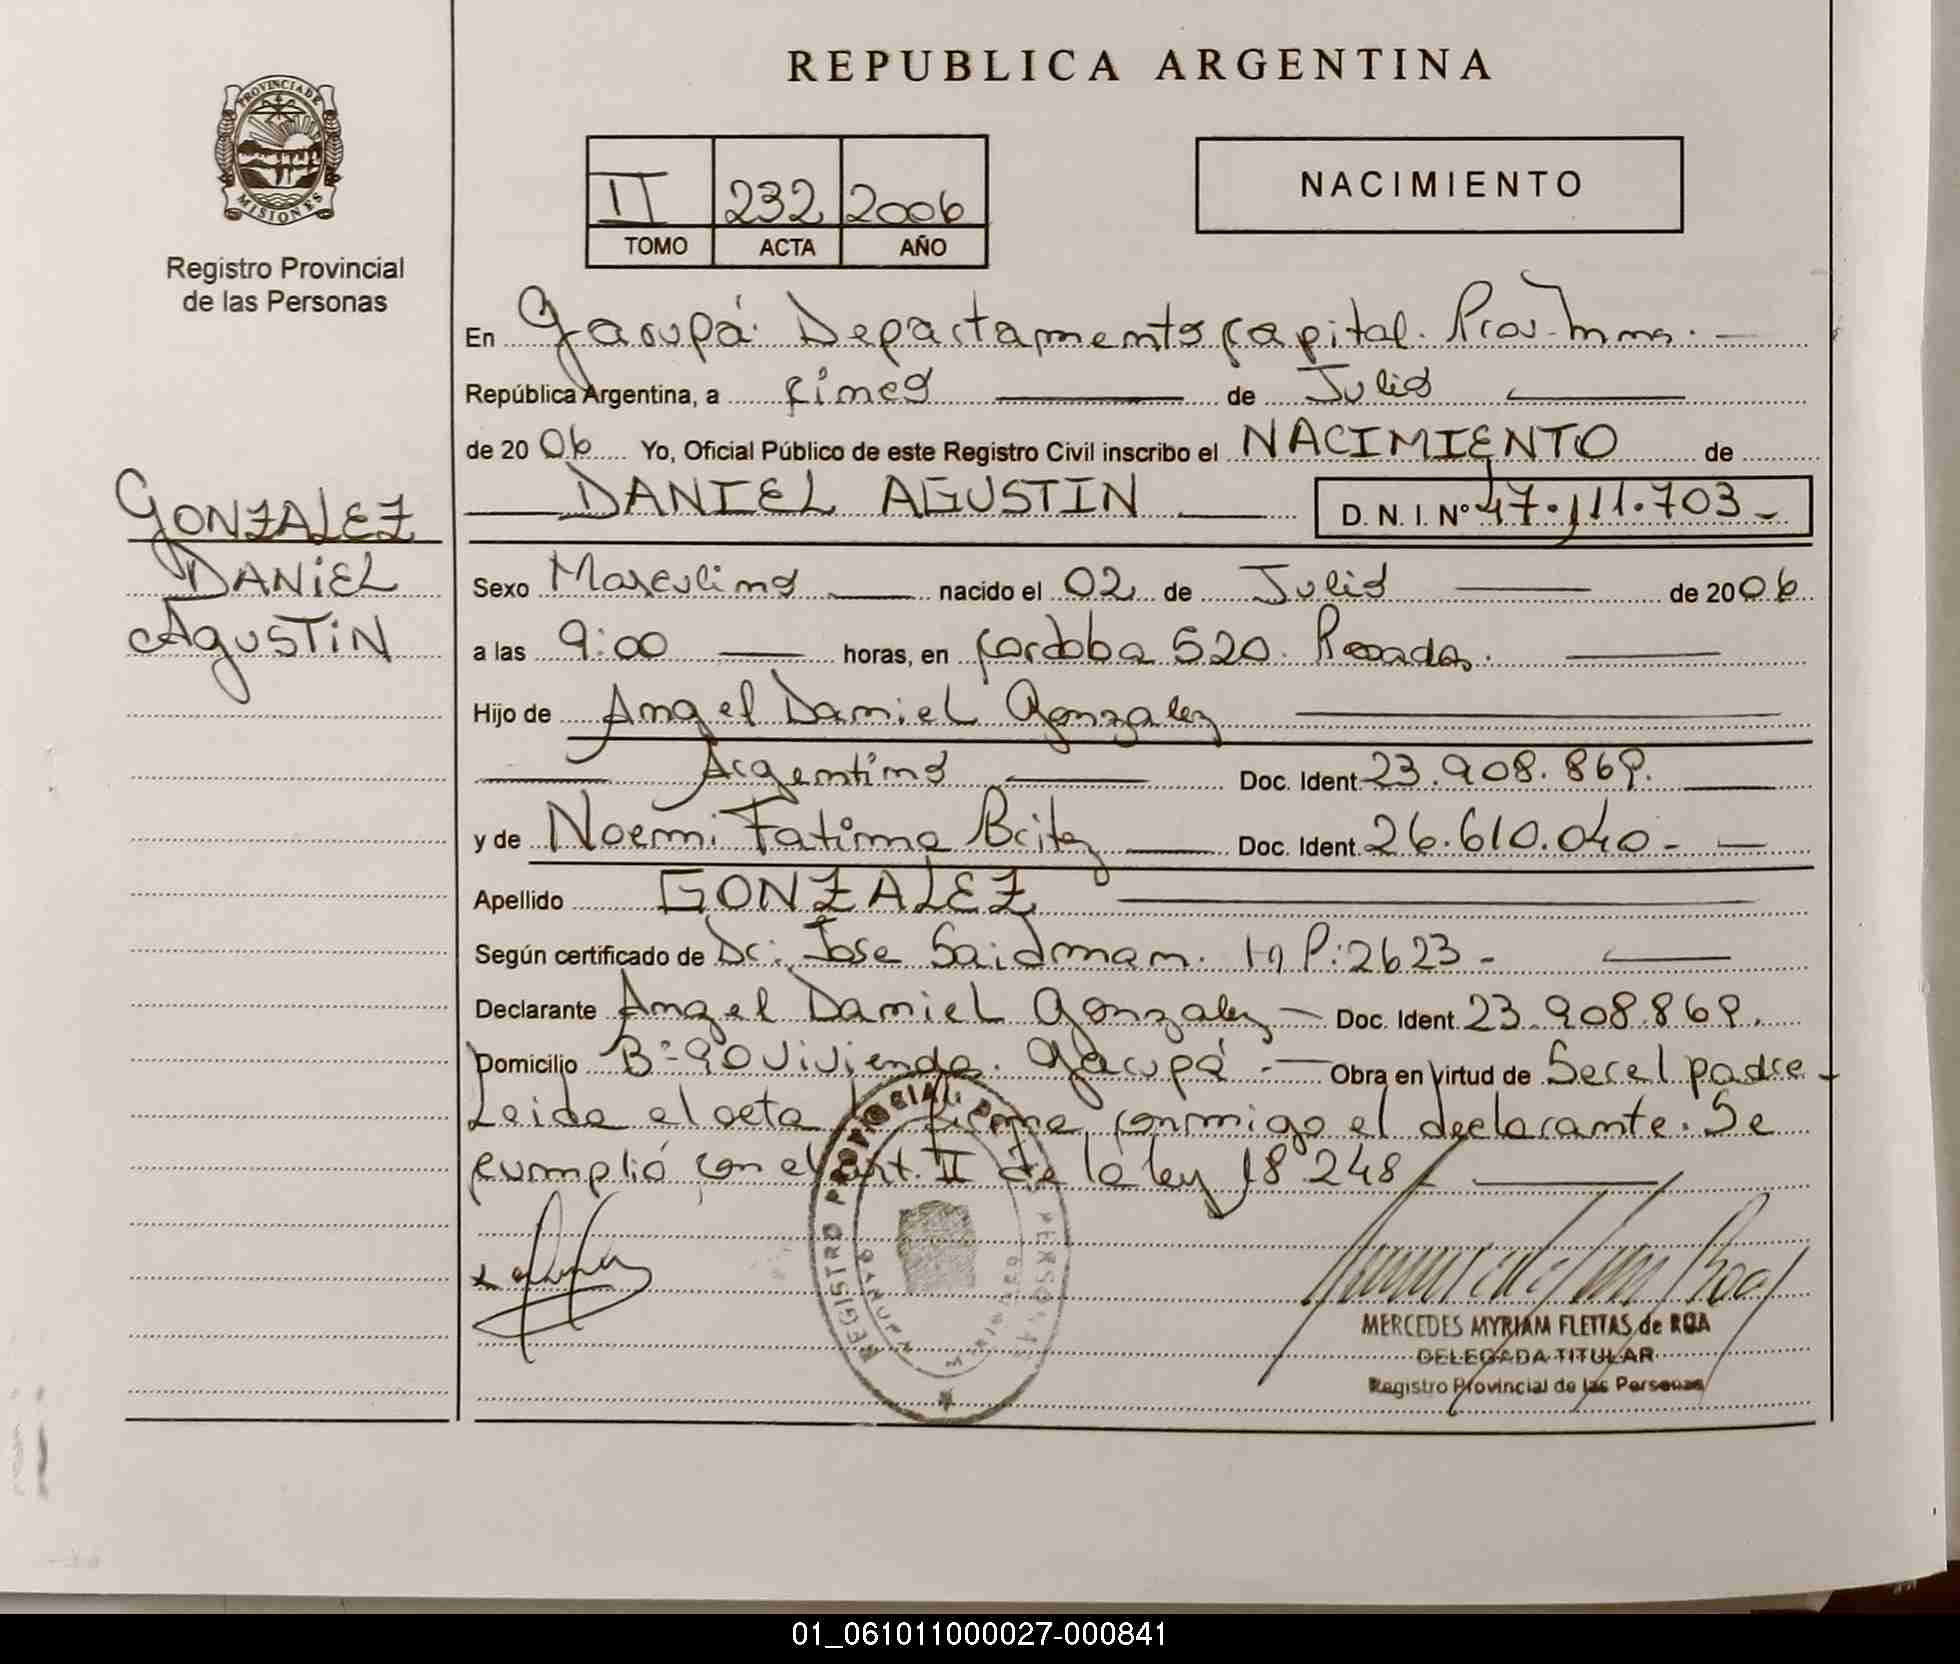 REPUBLICA ARGENTINA
PROVINCIA DE
MISIONES
Registro Provincial
de las Personas
II 232 2006
TOMO ACTA AÑO
NACIMIENTO
En Garupá. Departamento Capital. Prov. Mnes. —
República Argentina, a Cinco — de Julio —
de 2006 Yo, Oficial Público de este Registro Civil inscribo el NACIMIENTO de
— DANIEL AGUSTIN — D. N. I. Nº 47.111.703 -
GONZALEZ
DANIEL
AGUSTIN
Sexo Masculino — nacido el 02 de Julio — de 2006
a las 9:00 — horas, en Cordoba 520. Posadas. —
Hijo de Angel Daniel Gonzalez —
— Argentino — Doc. Ident. 23.908.869. —
y de Noemi Fatima Britez — Doc. Ident. 26.610.040 - —
Apellido GONZALEZ —
Según certificado de Dr: Jose Saidman. M P: 2623 - —
Declarante Angel Daniel Gonzalez — Doc. Ident. 23.908.869.
Domicilio Bº 90 Viviendas. Garupá. — Obra en virtud de Ser el padre -
Leida el acta firma conmigo el declarante. Se
cumplió con el art. II de la ley 18248 —
REGISTRO PROVINCIAL DE PERSONAS
GARUPA
MISIONES
MERCEDES MYRIAM FLEITAS de ROA
DELEGADA TITULAR
Registro Provincial de las Personas
01_061011000027-000841